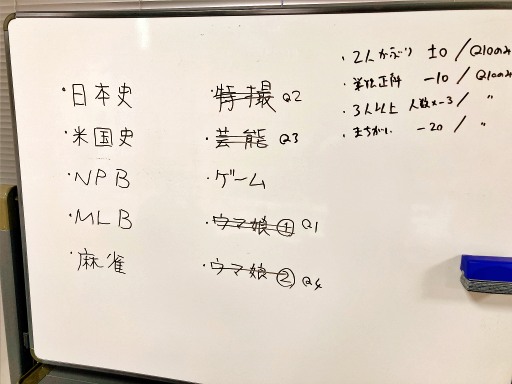 ・日本史
・米国史
・NPB
・MLB
・麻雀
・特撮 Q2
・芸能 Q3
・ゲーム
・ウマ娘① Q1
・ウマ娘② Q4
・2人かぶり ±0 / Q10のみ
・単独正解 -10 / Q10のみ
・3人以上 人数×-3 / 〃
・まちがい -20 / 〃